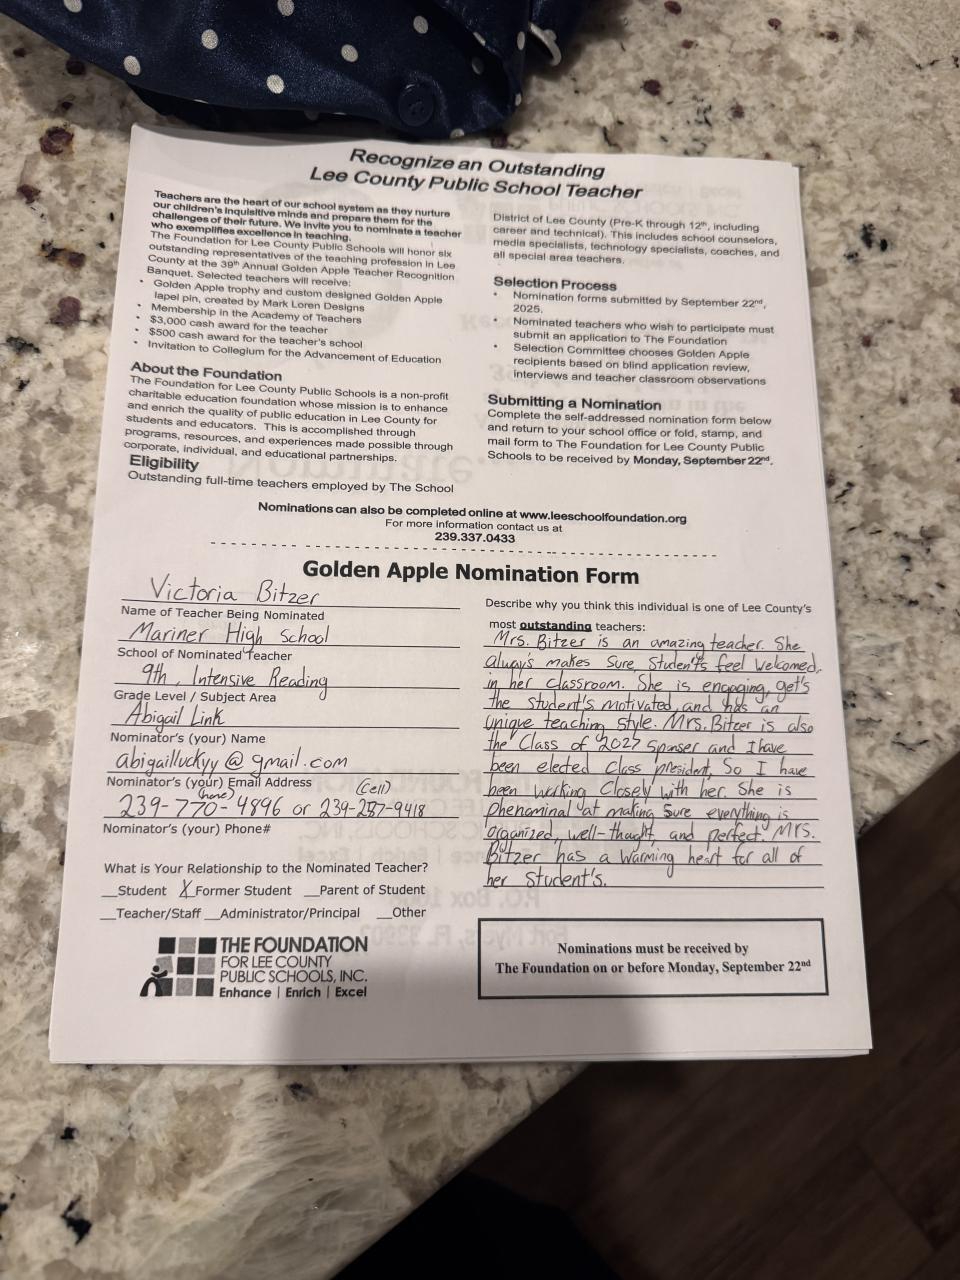 Recognize an Outstanding
Lee County Public School Teacher
Teachers are the heart of our school system as they nurture
our children's inquisitive minds and prepare them for the
challenges of their future. We invite you to nominate a teacher
who exemplifies excellence in teaching.
The Foundation for Lee County Public Schools will honor six
outstanding representatives of the teaching profession in Lee
County at the 39th Annual Golden Apple Teacher Recognition
Banquet. Selected teachers will receive:
• Golden Apple trophy and custom designed Golden Apple
lapel pin, created by Mark Loren Designs
• Membership in the Academy of Teachers
• $3,000 cash award for the teacher
• $500 cash award for the teacher's school
• Invitation to Collegium for the Advancement of Education
About the Foundation
The Foundation for Lee County Public Schools is a non-profit
charitable education foundation whose mission is to enhance
and enrich the quality of public education in Lee County for
students and educators. This is accomplished through
programs, resources, and experiences made possible through
corporate, individual, and educational partnerships.
Eligibility
Outstanding full-time teachers employed by The School
District of Lee County (Pre-K through 12th, including
career and technical). This includes school counselors,
media specialists, technology specialists, coaches, and
all special area teachers.
Selection Process
• Nomination forms submitted by September 22nd,
2025.
• Nominated teachers who wish to participate must
submit an application to The Foundation
• Selection Committee chooses Golden Apple
recipients based on blind application review,
interviews and teacher classroom observations
Submitting a Nomination
Complete the self-addressed nomination form below
and return to your school office or fold, stamp, and
mail form to The Foundation for Lee County Public
Schools to be received by Monday, September 22nd.
Nominations can also be completed online at www.leeschoolfoundation.org
For more information contact us at
239.337.0433
Golden Apple Nomination Form
Victoria Bitzer
Name of Teacher Being Nominated
Mariner High School
School of Nominated Teacher
9th, Intensive Reading
Grade Level / Subject Area
Abigail Link
Nominator's (your) Name
abigaillvkyy@gmail.com
Nominator's (your) Email Address
(home) (Cell)
239-770-4896 or 239-287-9418
Nominator's (your) Phone#
What is Your Relationship to the Nominated Teacher?
__Student X Former Student __Parent of Student
__Teacher/Staff __Administrator/Principal __Other
THE FOUNDATION
FOR LEE COUNTY
PUBLIC SCHOOLS, INC.
Enhance | Enrich | Excel
Describe why you think this individual is one of Lee County's
most outstanding teachers:
Mrs. Bitzer is an amazing teacher. She
always makes sure, Students feel welcomed,
in her classroom. She is engaging, get's
the student's motivated, and has an
unique teaching style. Mrs. Bitzer is also
the Class of 2027 Sponser and I have
been elected Class president, So I have
been working Closely with her. She is
phenominal at making Sure everything is
organized, well-thought, and perfect. Mrs.
Bitzer has a warming heart for all of
her Student's.
Nominations must be received by
The Foundation on or before Monday, September 22nd